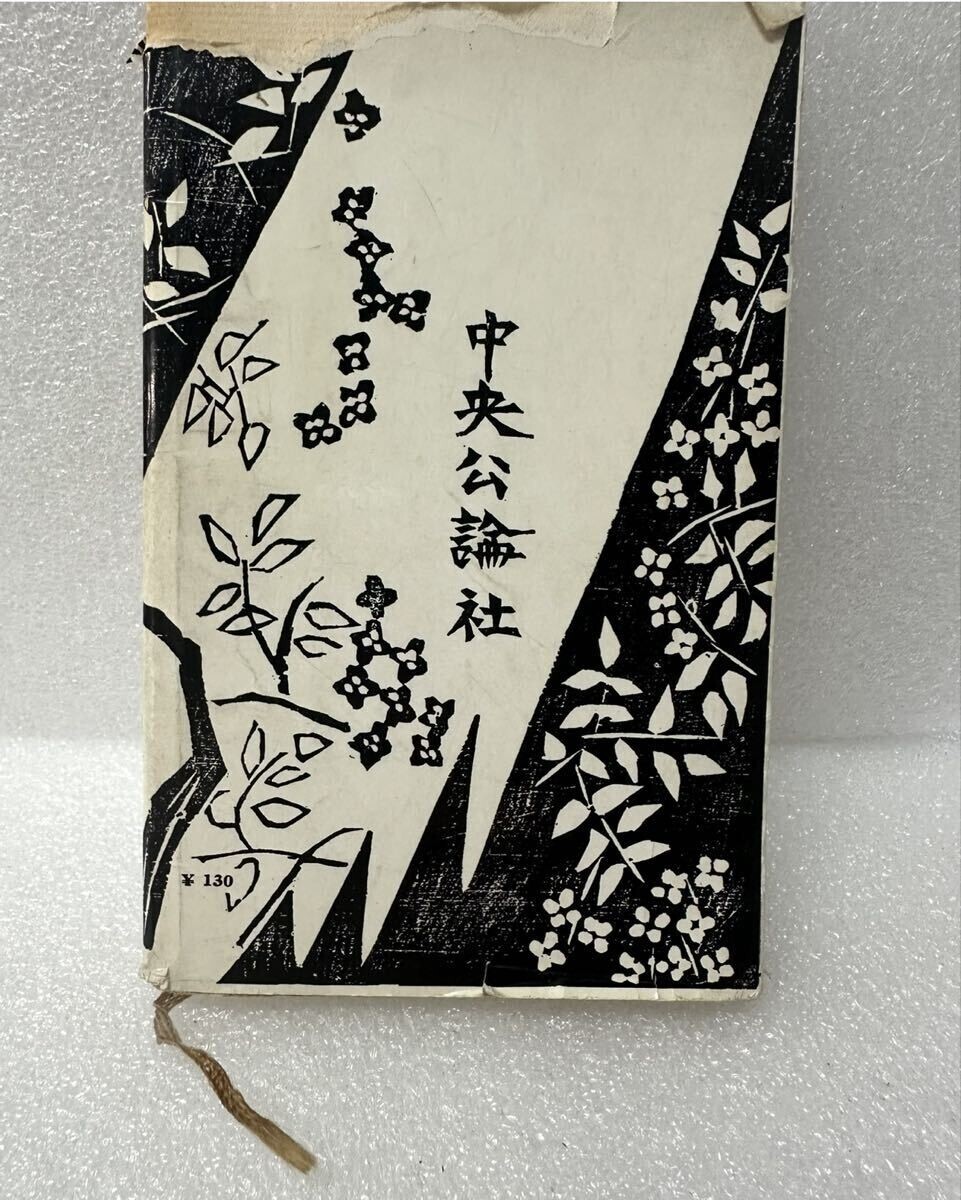 中央公論社
¥ 130